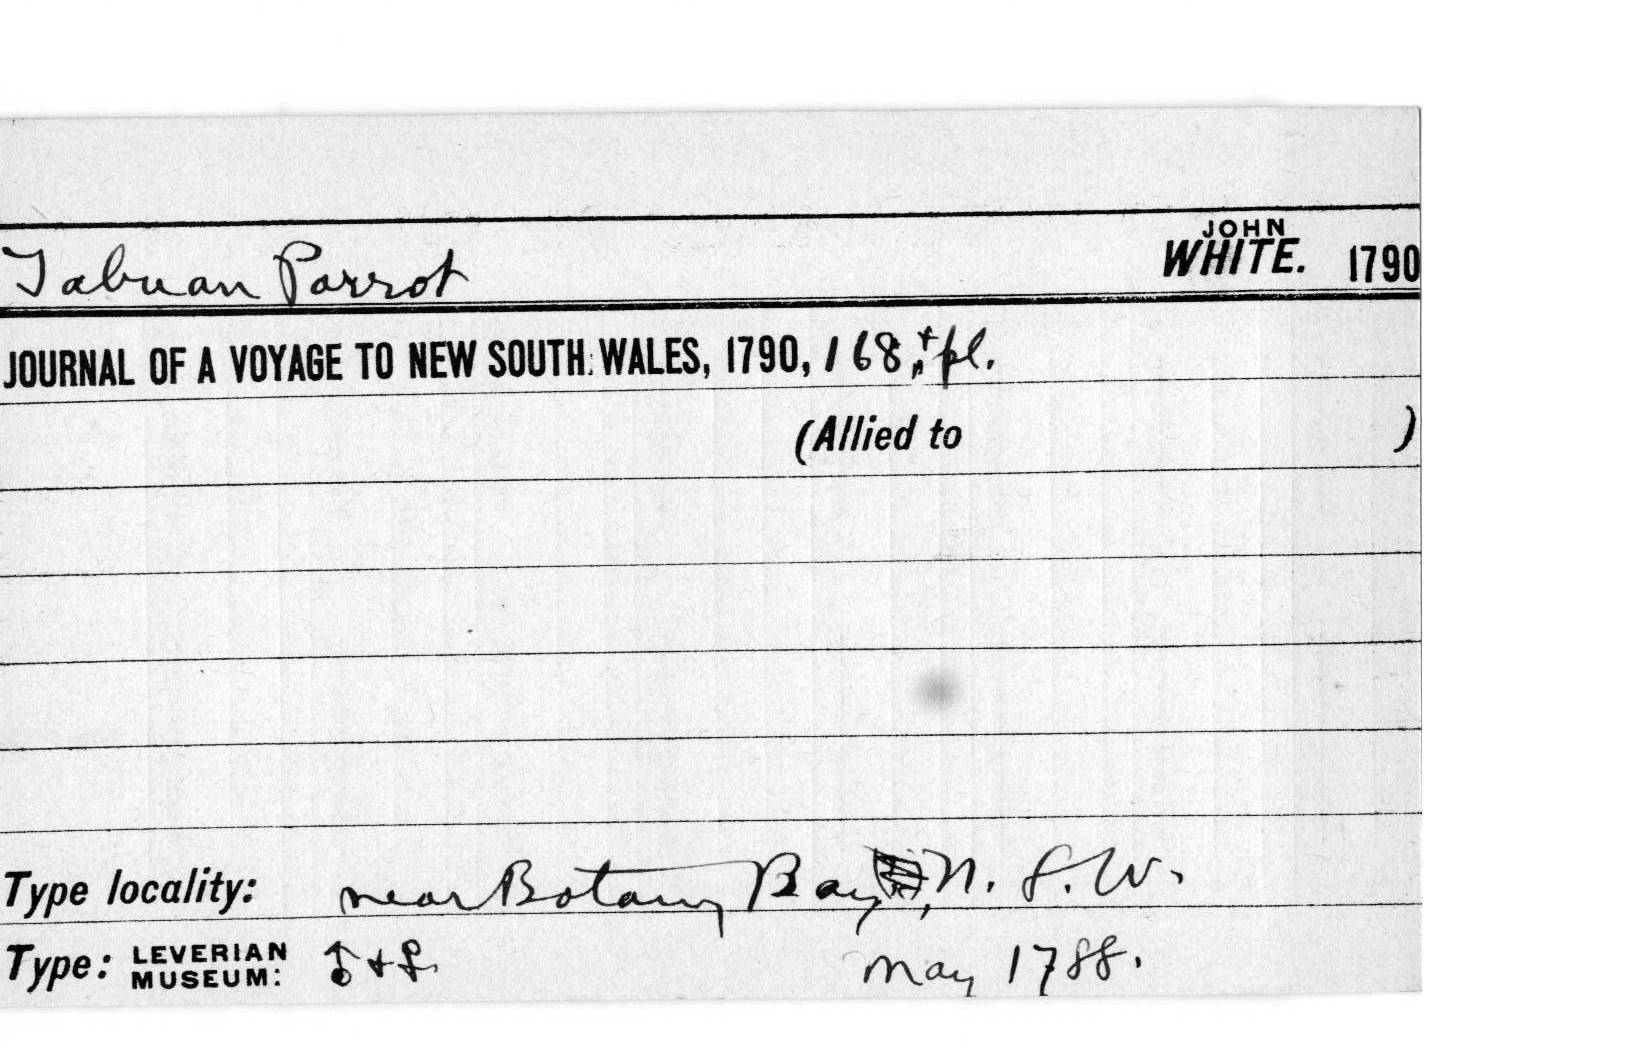 Tabuan Parrot JOHN WHITE. 1790
JOURNAL OF A VOYAGE TO NEW SOUTH WALES, 1790, 168, + pl.
(Allied to )
Type locality: near Botany Bay, N. S. W.
Type: LEVERIAN MUSEUM: ♂ + ♀. May 1788.